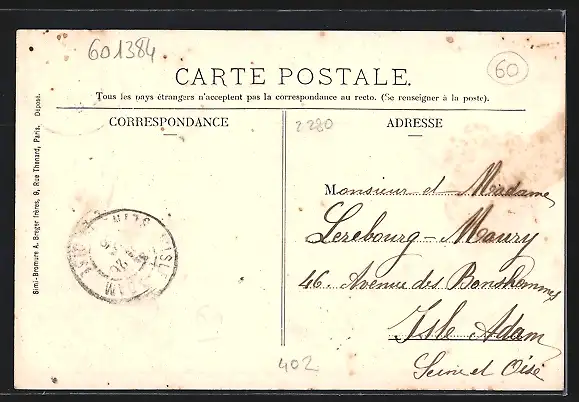 601384
60
CARTE POSTALE.
Tous les pays étrangers n'acceptent pas la correspondance au recto. (Se renseigner à la poste).
CORRESPONDANCE
2280
ADRESSE
Monsieur et Madame
Lerebourg-Maury
46. Avenue des Bonshommes
Isle Adam
Seine et Oise
402
Simi-Bromure A. Breger frères, 9, Rue Thenard, Paris. Déposé.